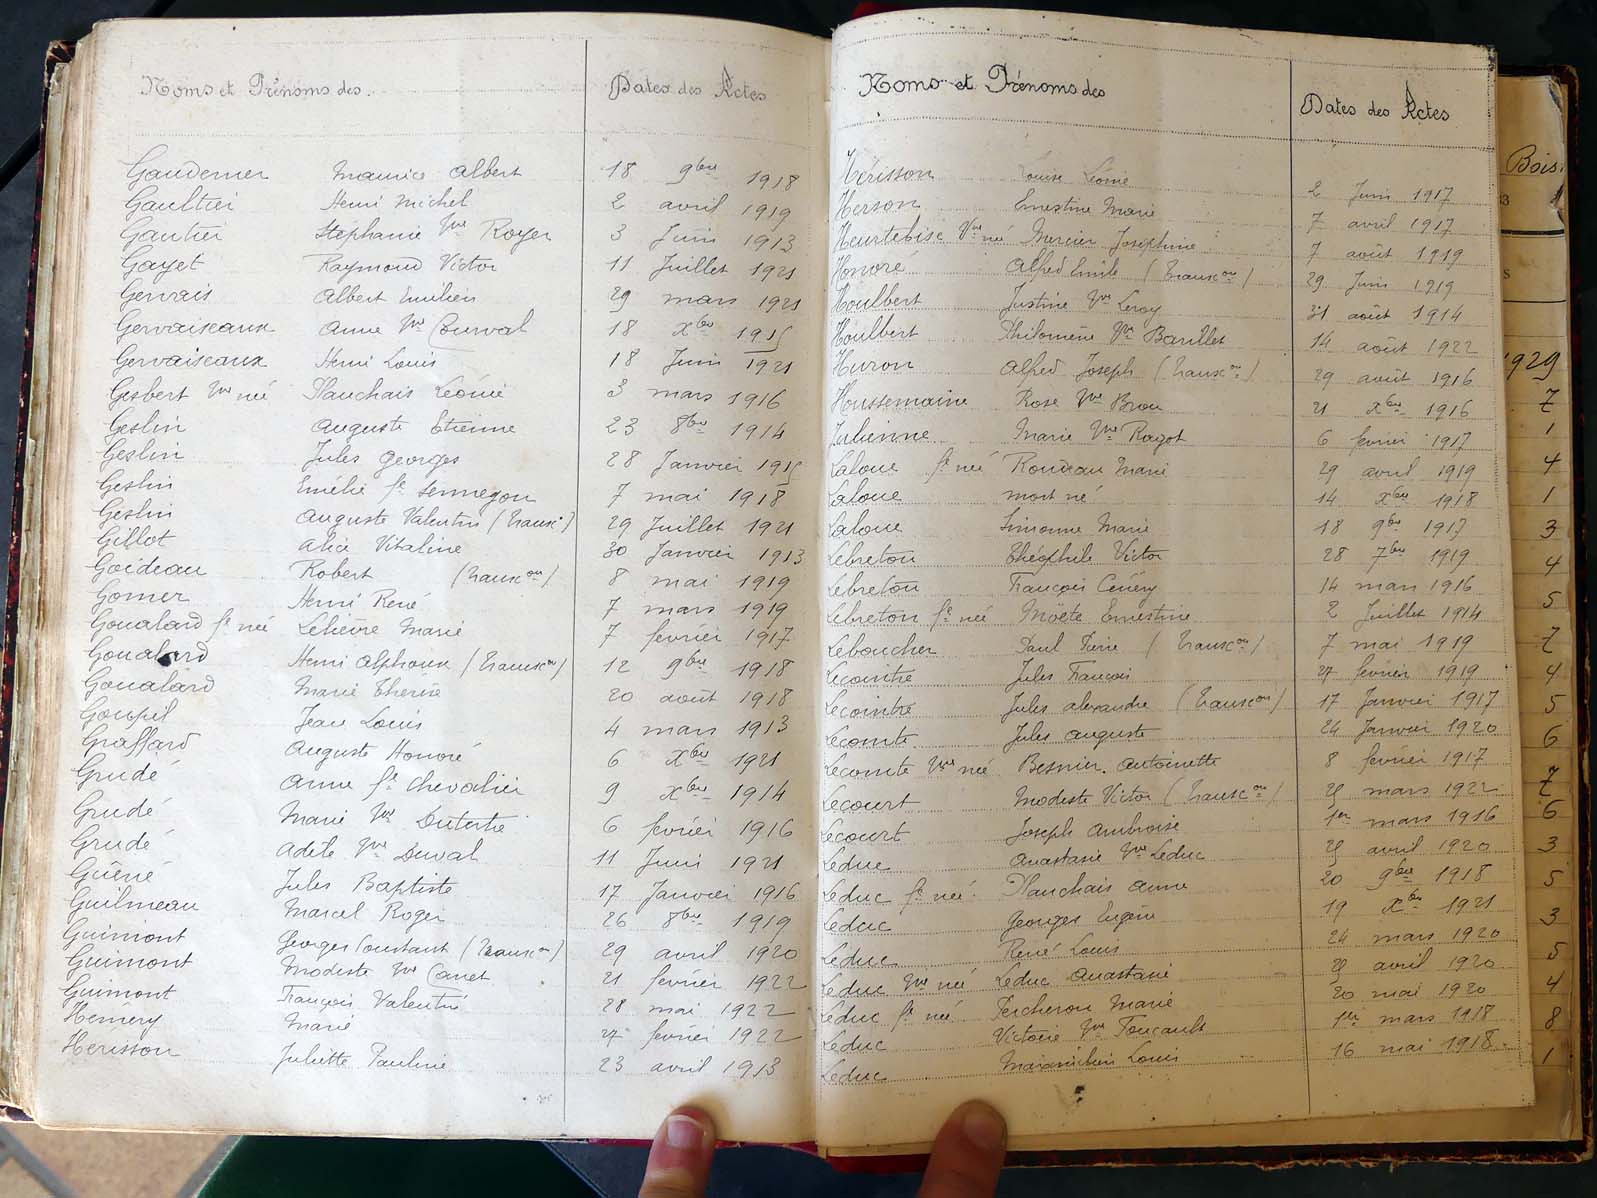 Noms et Prénoms des Dates des Actes
Gaudemer Maurice Albert 18 9bre 1918
Gaultier Henri Michel 2 avril 1919
Gautier Stéphanie Vve Royer 3 Juin 1913
Gayet Raymond Victor 11 Juillet 1921
Gervais Albert Emilien 29 mars 1921
Gervaiseaux Anne Vve Courval 18 Xbre 1915
Gervaiseaux Henri Louis 18 Juin 1921
Gesbert Vve née Plauchais Léonie 3 mars 1916
Geslin Auguste Etienne 23 8bre 1914
Geslin Jules Georges 28 Janvier 1915
Geslin Emélie fe Sennegon 7 mai 1918
Geslin Auguste Valentin (Transc.) 29 Juillet 1921
Gillot Alice Vitaline 30 Janvier 1913
Goideau Robert (Transcon) 8 mai 1919
Gomer Henri René 7 mars 1919
Goualard fe née Lelièvre Marie 7 février 1917
Goualard Henri Alphonse (Transcon) 12 9bre 1918
Goualard Marie Thérèse 20 août 1918
Goupil Jean Louis 4 mars 1913
Graffard Auguste Honoré 6 Xbre 1921
Grudé Anne fe Chevalier 9 Xbre 1914
Grudé Marie Vve Dutertre 6 février 1916
Grudé Adèle Vve Duval 11 Juin 1921
Guéné Jules Baptiste 17 Janvier 1916
Guilmeau Marcel Roger 26 8bre 1919
Guimont Georges Constant (Transcon) 29 avril 1920
Guimont Modeste Vve Canet 21 février 1922
Guimont François Valentin 28 mai 1922
Hemery Marie 27 février 1922
Herisson Juliette Pauline 23 avril 1913
Noms et Prénoms des Dates des Actes
Hérisson Louise Léonie 2 Juin 1917
Herson Ernestine Marie 7 avril 1917
Heurtebise Vve née Mercier Joséphine 7 août 1919
Honoré Alfred Emile (Transcon) 29 Juin 1919
Houlbert Justine Vve Leroy 31 août 1914
Houlbert Philomène Vve Barillet 14 août 1922
Huron Alfred Joseph (Transcon) 29 août 1916
Houssemaine Rose Vve Brou 21 Xbre 1916
Julienne Marie Vve Ragot 6 février 1917
Laloue fe née Rondeau Marie 29 avril 1919
Laloue mort né 14 Xbre 1918
Laloue Simonne Marie 18 9bre 1917
Lebreton Théophile Victor 28 7bre 1919
Lebreton François Cénery 14 mars 1916
Lebreton fe née Moëte Ernestine 2 Juillet 1914
Leboucher Paul Pierre (Transcon) 7 mai 1919
Lecointre Jules François 27 février 1919
Lecointre Jules Alexandre (Transcon) 17 Janvier 1917
Lecomte Jules Auguste 24 Janvier 1920
Lecomte Vve née Besnier Antoinette 8 février 1917
Lecourt Modeste Victor (Transcon) mars 1922
Lecourt Joseph Ambroise 1er mars 1916
Leduc Anastasie Vve Leduc avril 1920
Leduc fe née Plauchais Anne 20 9bre 1918
Leduc Georges Eugène 19 Xbre 1921
Leduc René Louis 24 mars 1920
Leduc Vve née Leduc Anastasie avril 1920
Leduc fe née Percheron Marie 20 mai 1920
Leduc Victorie Vve Foucault 1er mars 1918
Leduc Maximilien Louis 16 mai 1918
Bois
1929
7
1
4
1
3
4
5
7
4
5
6
7
6
3
5
3
5
4
8
1